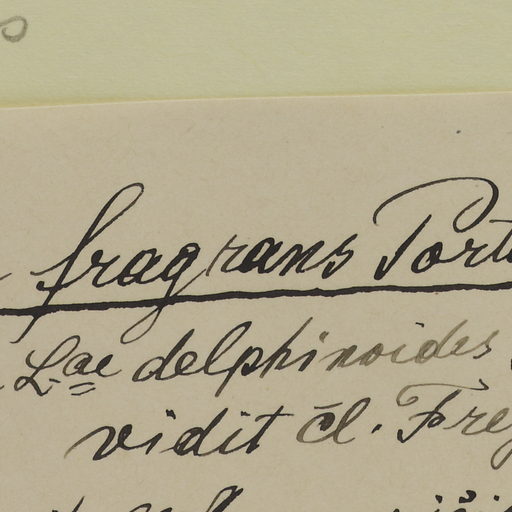 fragrans Port
Lae delphinoides
vidit c̄l. Frey